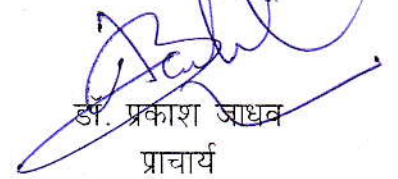 डॉ. प्रकाश जाधव
प्राचार्य